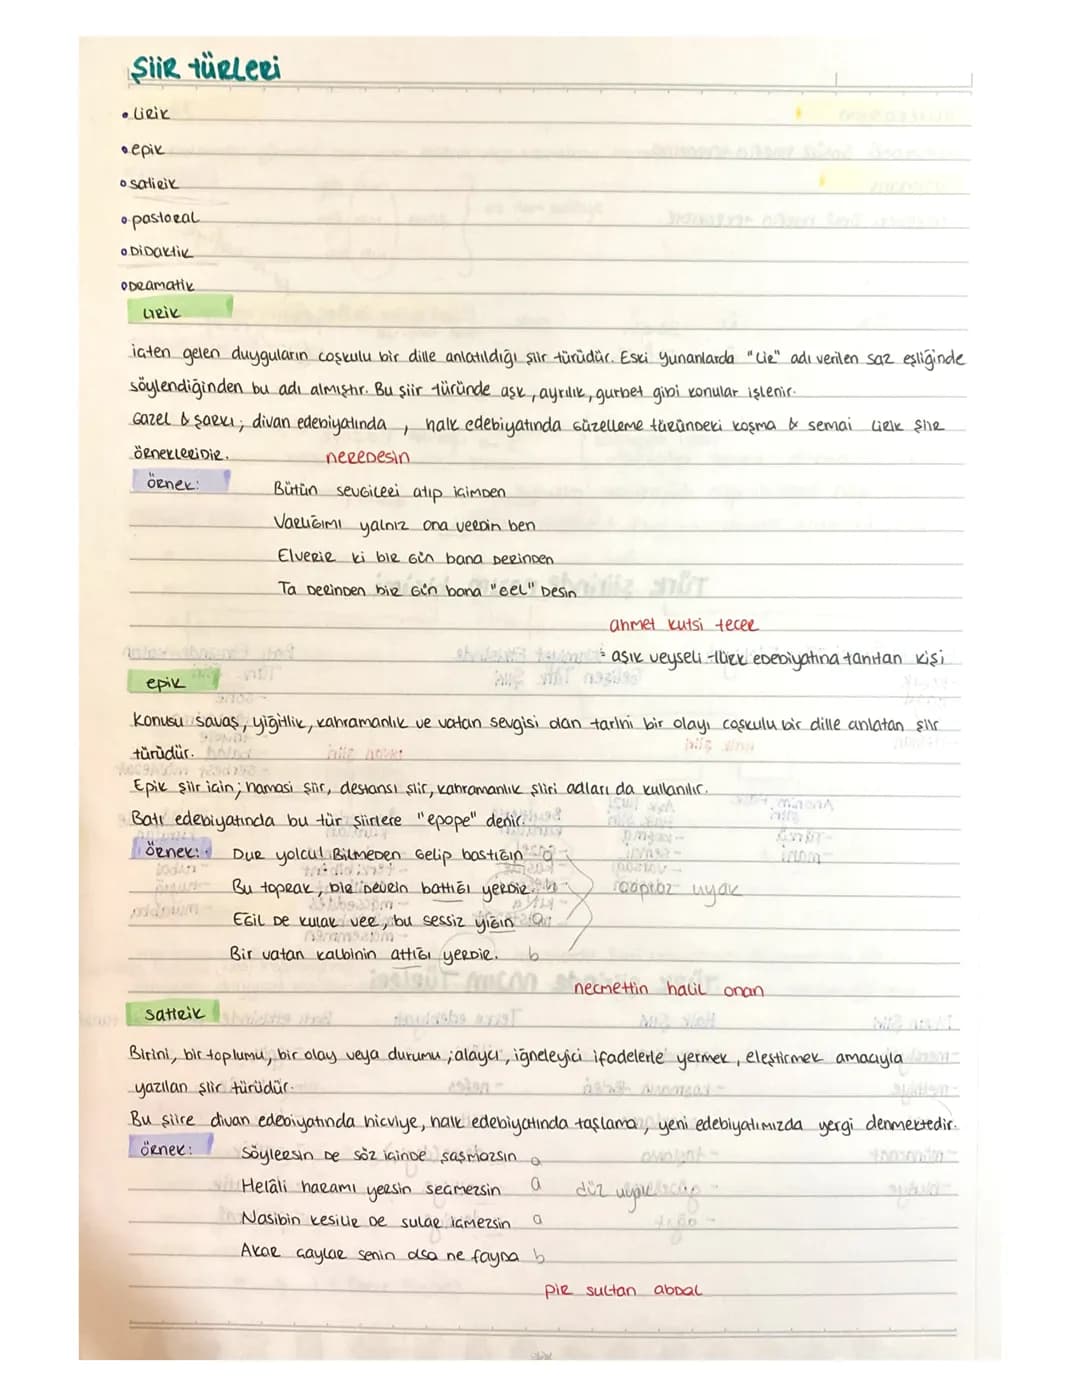 ŞiiR tüRLeRi
• LiRik
• epik
• satiRik
• pastoRal
• DiDaktik
• DRamatik
LiRik
içten gelen duyguların coşkulu bir dille anlatıldığı şiir türüdür. Eski Yunanlarda "Lir" adı verilen saz eşliğinde
söylendiğinden bu adı almıştır. Bu şiir türünde aşk, ayrılık, gurbet gibi konular işlenir.
Gazel & şarkı; divan edebiyatında, halk edebiyatında güzelleme türündeki koşma & semai lirik şiir
örnekleridir.
neredesin
örnek:
Bütün sevgileri atıp içimden
Varlığımı yalnız ona verdin ben
Elverir ki bir gün bana derinden
Ta derinden bir gün bana "gel" desin
ahmet kutsi tecer
: aşık veyseli Türk edebiyatına tanıtan kişi
epik
Konusu savaş, yiğitlik, kahramanlık ve vatan sevgisi olan tarihi bir olayı coşkulu bir dille anlatan şiir
türüdür.
Epik şiir için; hamasi şiir, destansı şiir, kahramanlık şiiri adları da kullanılır.
Batı edebiyatında bu tür şiirlere "epope" denir.
örnek:
Dur yolcu! Bilmeden gelip bastığın a
Bu toprak, bir devrin battığı yerdir. b
çapraz uyak
Eğil de kulak ver, bu sessiz yığın a
Bir vatan kalbinin attığı yerdir. b
necmettin halil onan
satirik
Birini, bir toplumu, bir olay veya durumu; alaycı, iğneleyici ifadelerle yermek, eleştirmek amacıyla
yazılan şiir türüdür.
Bu şiire divan edebiyatında hicviye, halk edebiyatında taşlama, yeni edebiyatımızda yergi denmektedir.
örnek:
Söylersin de söz içinde şaşmazsın a
Helâli haramı yersin seçmezsin a düz uyak
Nasibin kesilir de sular içmezsin a
Akar çaylar senin olsa ne fayda b
pir sultan abdal